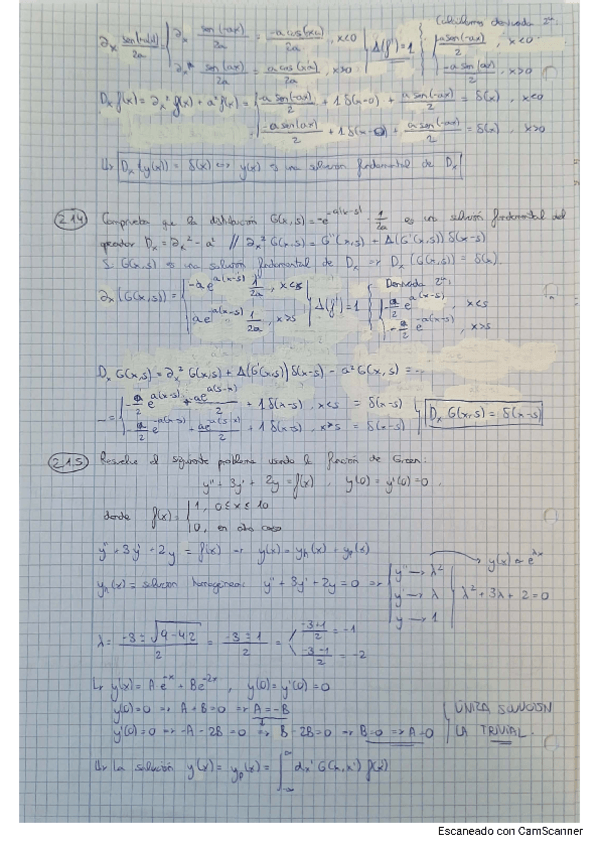 ∂x sen(a|x|)/2a = { ∂x sen(-ax)/2a = -a cos(xa)/2a , x<0
∂x sen(ax)/2a = a cos(xa)/2a , x>0 } Δ(f')=1
Calculamos derivada 2ª:
{ a sen(-ax)/2 , x<0
-a sen(ax)/2 , x>0
Dx f(x) = ∂x² f(x) + a² f(x) = { -a sen(-ax)/2 + 1 δ(x-0) + a sen(-ax)/2 = δ(x) , x<0
-a sen(ax)/2 + 1 δ(x-0) + a sen(-ax)/2 = δ(x) , x>0
↳ Dx (y(x)) = δ(x) ⇔ y(x) es una solución fundamental de Dx
2.14 Comprueba que la distribución G(x,s) = -e^{-a|x-s|} · 1/2a es una solución fundamental del
operador Dx = ∂x² - a² // ∂x² G(x,s) = G''(x,s) + Δ(G'(x,s)) δ(x-s)
Si G(x,s) es una solución fundamental de Dx ⇒ Dx (G(x,s)) = δ(x)
∂x (G(x,s)) = { -a e^{a(x-s)} 1/2a , x<s
a e^{-a(x-s)} 1/2a , x>s } Δ(f') = 1
Derivada 2ª:
{ -a/2 e^{a(x-s)} , x<s
-a/2 e^{-a(x-s)} , x>s
Dx G(x,s) = ∂x² G(x,s) + Δ(G'(x,s)) δ(x-s) - a² G(x,s) = ...
... = { -a/2 e^{a(x-s)} + ae^{a(s-x)}/2 + 1 δ(x-s) , x<s = δ(x-s)
-a/2 e^{-a(x-s)} + ae^{-a(s-x)}/2 + 1 δ(x-s) , x>s = δ(x-s) } Dx G(x,s) = δ(x-s)
2.15 Resuelve el siguiente problema usando la función de Green:
y'' + 3y' + 2y = f(x) , y(0) = y'(0) = 0 ,
donde f(x) = { 1, 0 ≤ x ≤ 10
0, en otro caso
y'' + 3y' + 2y = f(x) ⇒ y(x) = yh(x) + yp(x)
y(x) = e^{λx}
yh(x) = solución homogénea: y'' + 3y' + 2y = 0 ⇒ { y'' → λ²
y' → λ
y → 1 } λ² + 3λ + 2 = 0
λ = -3 ± √9-4·2 / 2 = -3 ± 1 / 2 = < -3+1/2 = -1
-3-1/2 = -2
↳ y(x) = A e^{-x} + B e^{-2x} , y(0) = y'(0) = 0
y(0) = 0 ⇒ A + B = 0 ⇒ A = -B
y'(0) = 0 ⇒ -A - 2B = 0 ⇒ B - 2B = 0 ⇒ B = 0 ⇒ A = 0
ÚNICA SOLUCIÓN
LA TRIVIAL.
↳ La solución y(x) = yp(x) = ∫_{-∞}^{∞} dx' G(x,x') f(x)
Escaneado con CamScanner